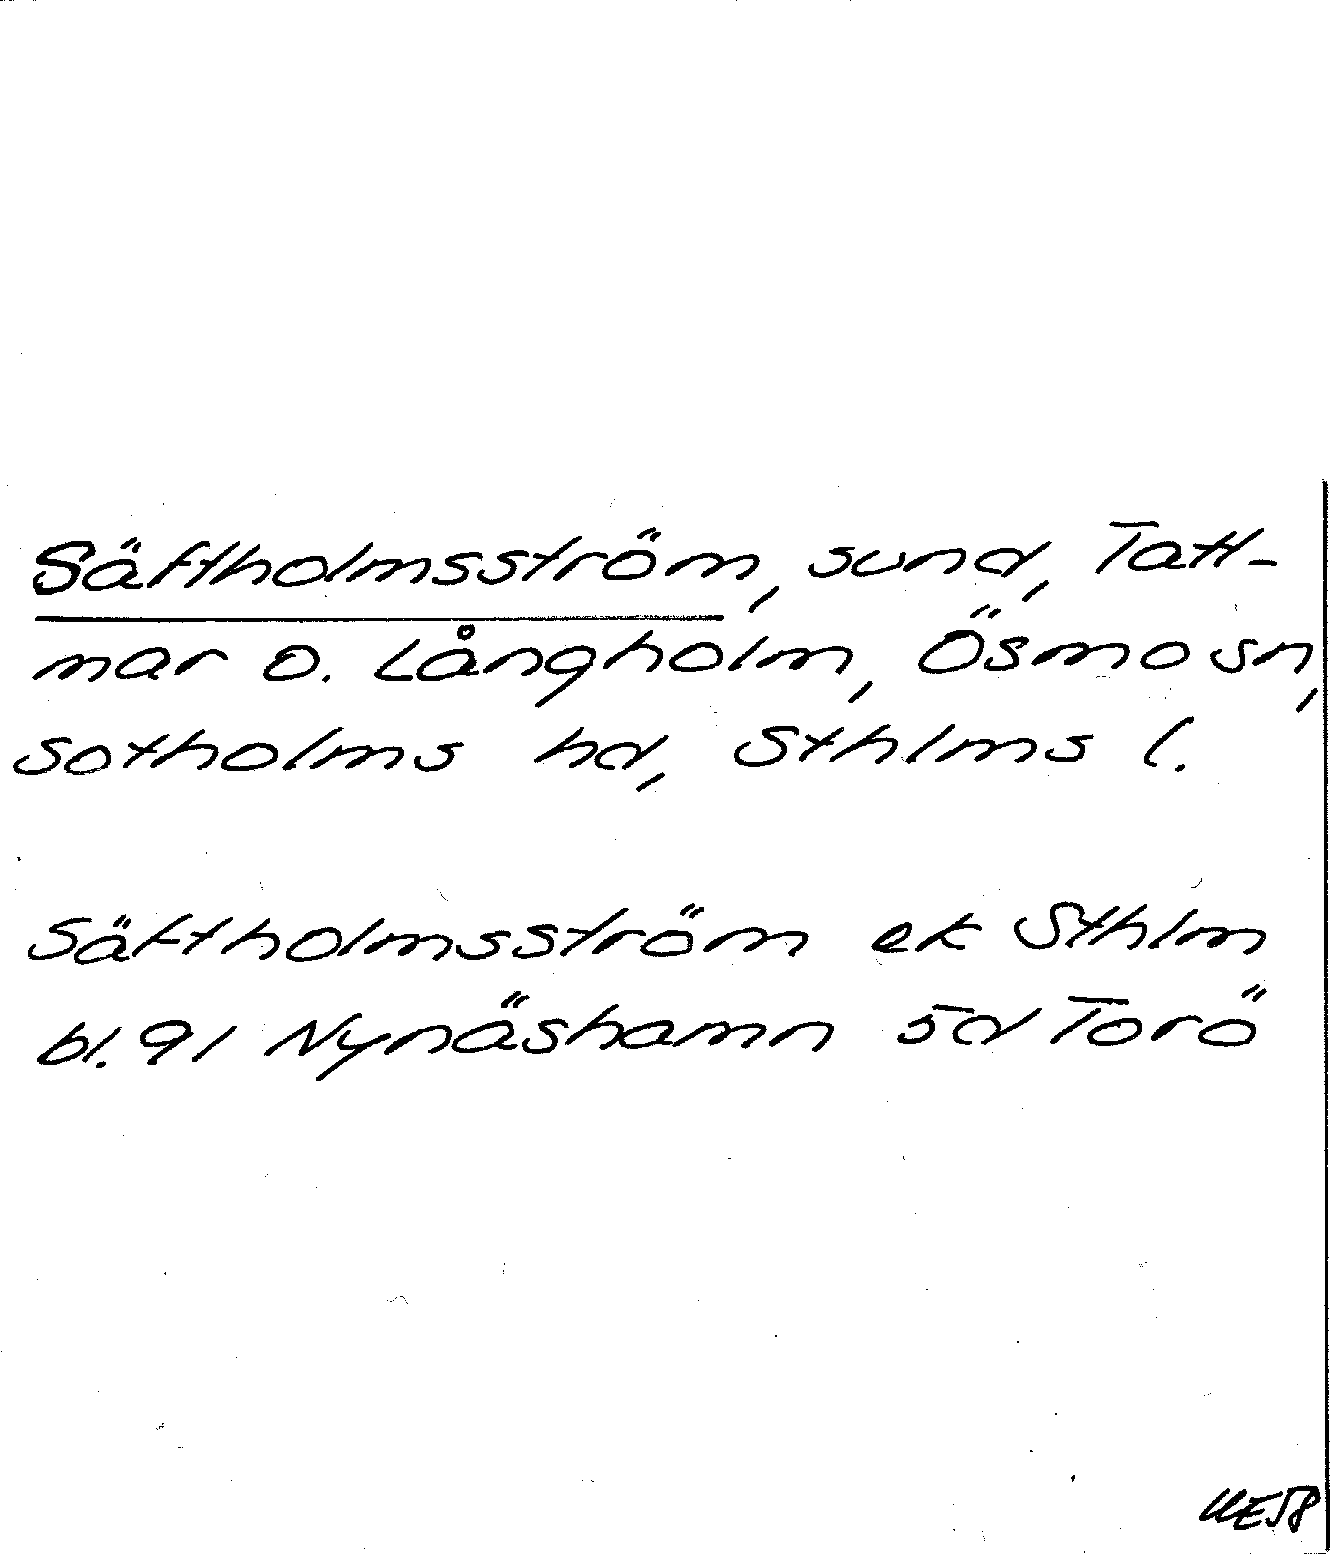 Säftholmsström, sund, Tatt-
mar o. Långholm, Ösmo sn,
Sotholms hd, Sthlms l.
Säftholmsström ek Sthlm
bl. 91 Nynäshamn 5d Torö